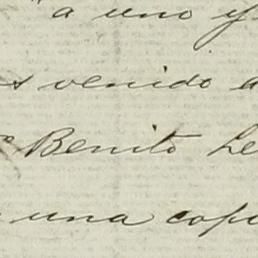 a uno y
venido a
Benito Le
una copi